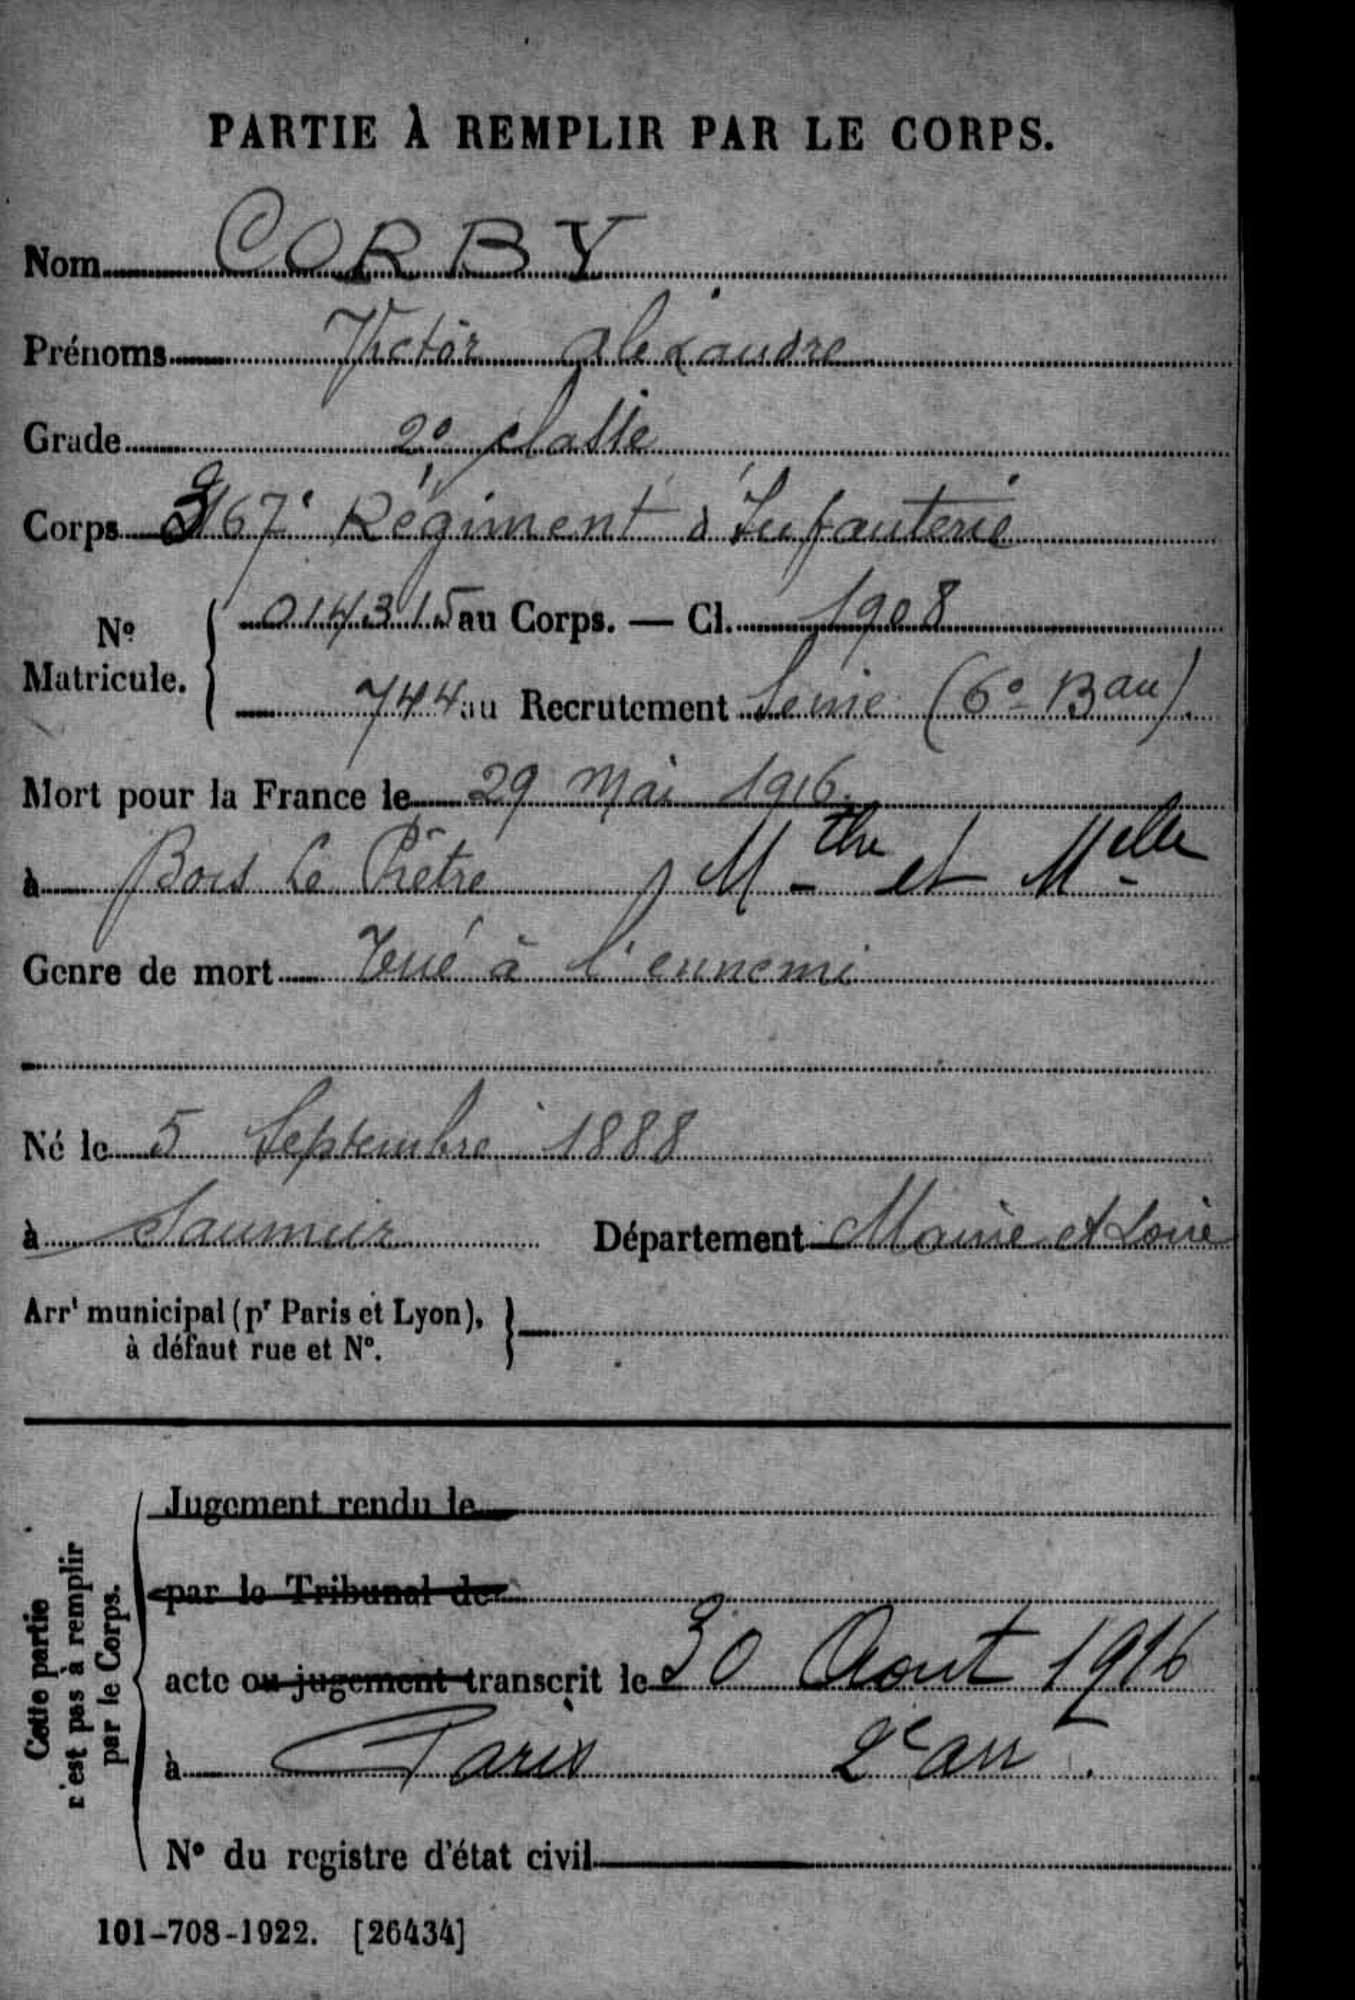 PARTIE À REMPLIR PAR LE CORPS.
Nom CORBY
Prénoms Victor Alexandre
Grade 2e classe
Corps 367e Régiment d'Infanterie
No Matricule. { 014315 au Corps. — Cl. 1908
744 au Recrutement Seine (6o Bau)
Mort pour la France le 29 Mai 1916.
à Bois Le Prêtre Mthe et Mlle
Genre de mort Tué à l'ennemi
Né le 5 Septembre 1888
à Saumur Département Maine et Loire
Arrt municipal (pr Paris et Lyon), à défaut rue et No.
Cette partie n'est pas à remplir par le Corps.
Jugement rendu le
par le Tribunal de
acte ou jugement transcrit le 30 Aout 1916
à Paris 2e arr.
No du registre d'état civil
101-708-1922. [26434]